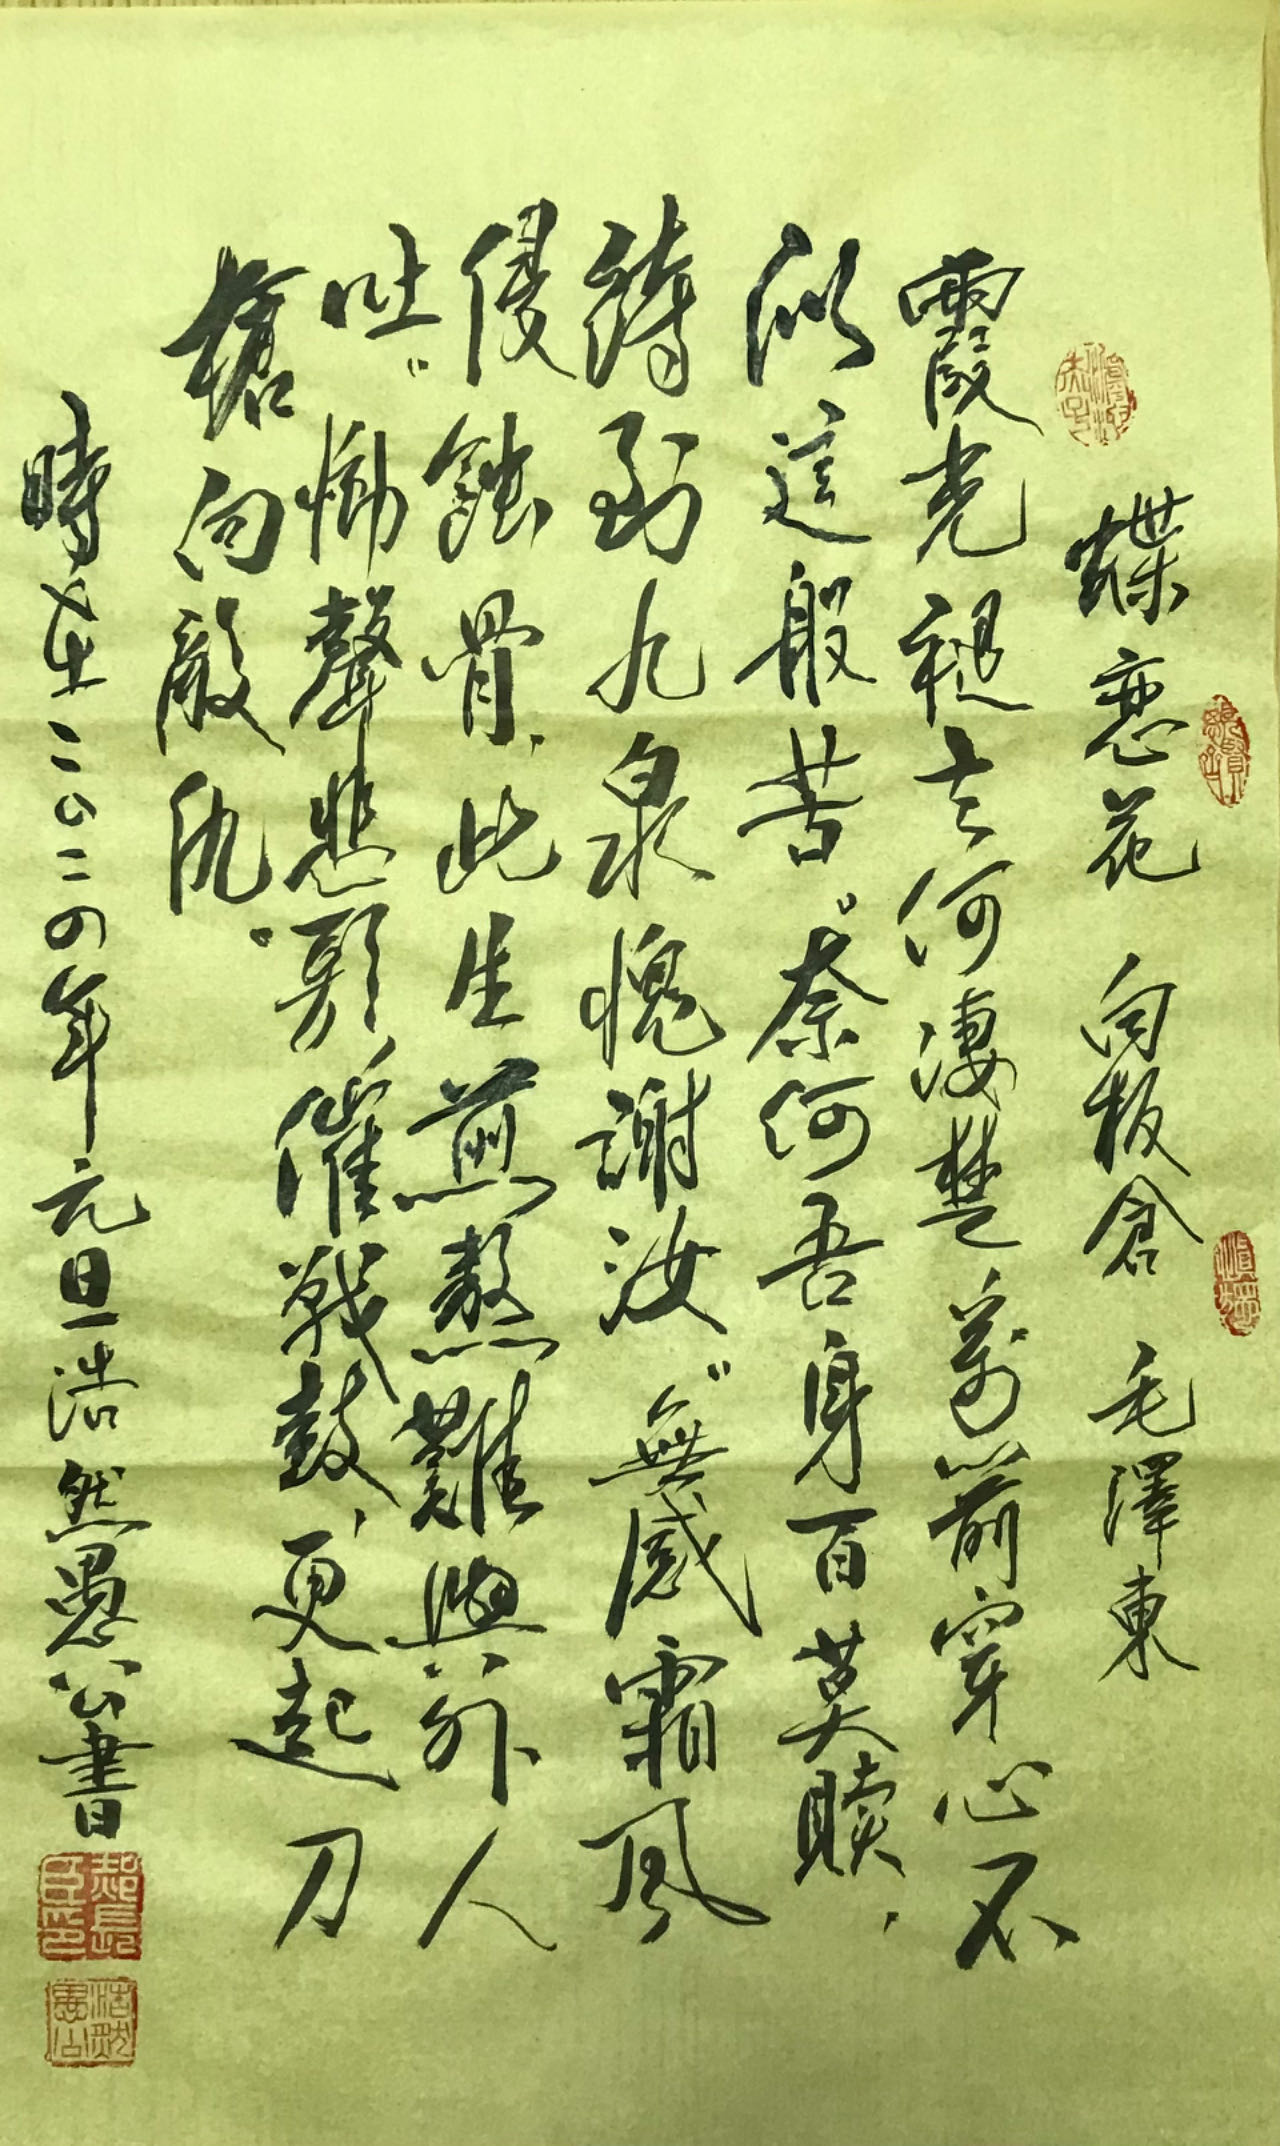 蝶恋花 向板倉 毛澤東
霞光褪去何淒楚萬箭穿心不
似這般苦。奈何吾身百莫贖，
待到九泉愧謝汝。無感霜風
侵蝕骨，此生煎熬難與外人
吐。慟聲悲歌催戰鼓，更起刀
槍向敵仇。
時在二〇二四年元旦浩然愚公書
浩然愚公